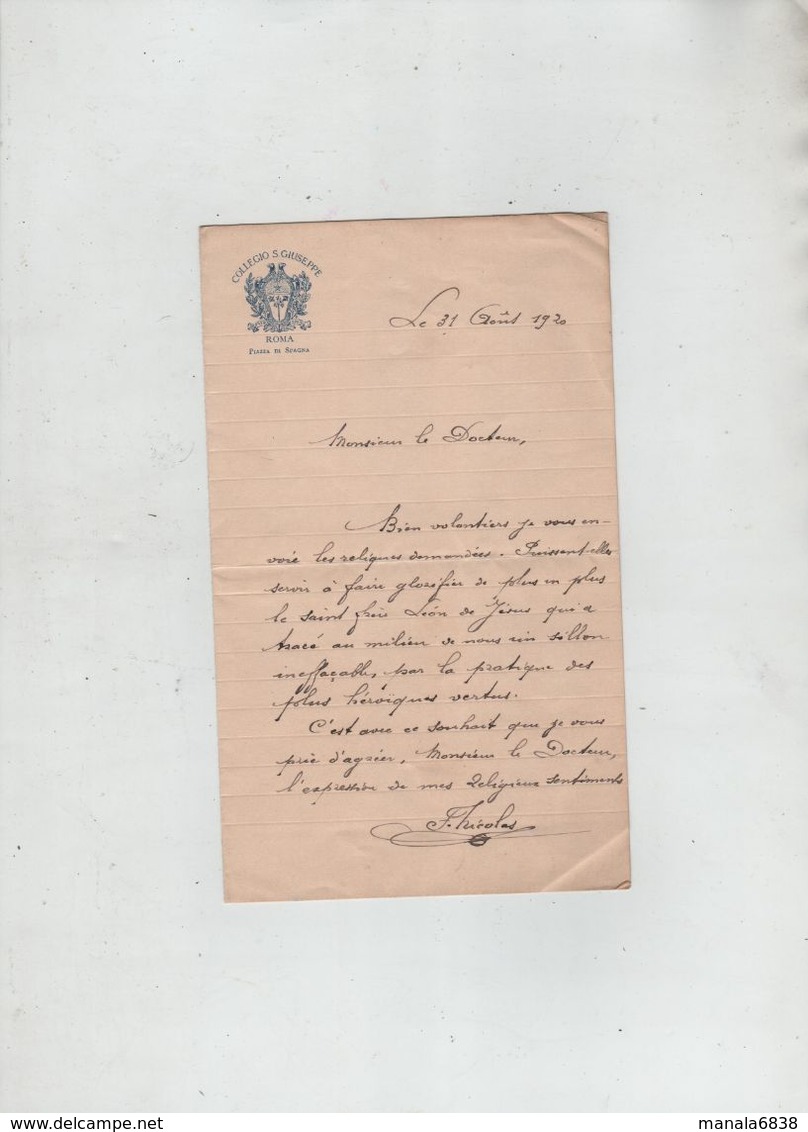 COLLEGIO S. GIUSEPPE
ROMA
PIAZZA DI SPAGNA
Le 31 Août 1920
Monsieur le Docteur,
Bien volontiers je vous en-
voie les reliques demandées. Puissent-elles
servir à faire glorifier de plus en plus
le saint frère Léon de Jésus qui a
tracé au milieu de nous un sillon
ineffaçable, par la pratique des
plus héroïques vertus.
C'est avec ce souhait que je vous
prie d'agréer, Monsieur le Docteur,
l'expression de mes religieux sentiments
F. Nicolas
delcampe.net
manala6838